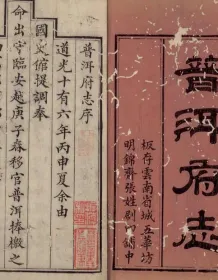 普洱府志
板存雲南省城五華坊
明錦齋張姓刷印鋪申
普洱府志序
道光十有六年丙申夏余由
國史館提調奉
命出守臨安越庚子春移官普洱捧檄之